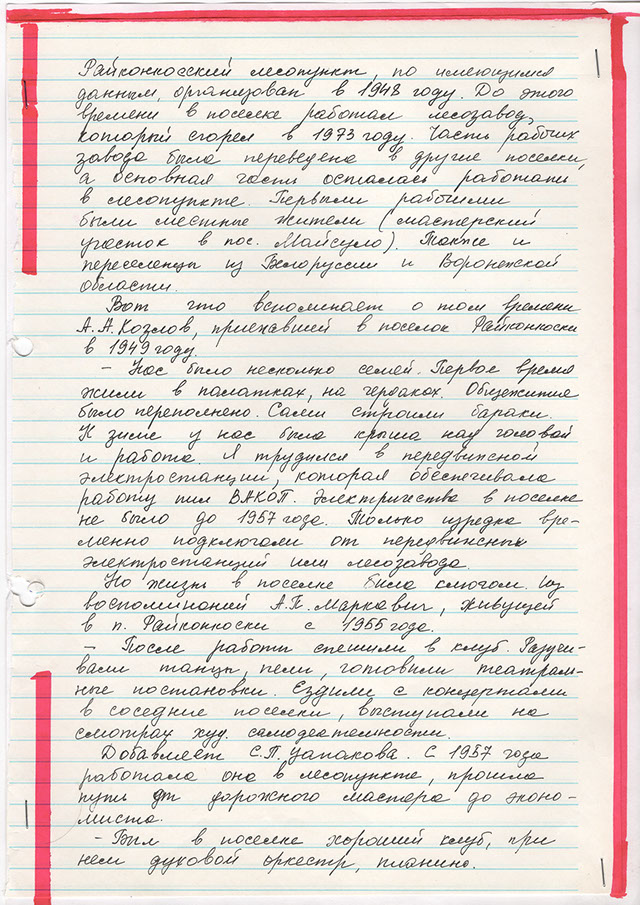 Райконкосский лесопункт, по имеющимся
данным, организован в 1948 году. До этого
времени в поселке работал лесозавод,
который сгорел в 1973 году. Часть рабочих
завода была переведена в другие поселки,
а основная часть осталась работать
в лесопункте. Первыми рабочими
были местные жители (мастерский
участок в пос. Майсула). Также и
переселенцы из Белоруссии и Воронежской
области.
Вот что вспоминает о том времени
А.А.Козлов, приехавший в поселок Райконкоски
в 1949 году.
- Нас было несколько семей. Первое время
жили в палатках, на чердаках. Общежитие
было переполнено. Сами строили бараки.
К зиме у нас была крыша над головой
и работа. Я трудился в передвижной
электростанции, которая обеспечивала
работу пил ВАКОП. Электричества в поселке
не было до 1957 года. Только изредка вре-
менно подключали от передвижных
электростанций или лесозавода.
Но жизнь в поселке била ключом. Из
воспоминаний А.П.Маркевич, живущей
в п. Райконкоски с 1955 года.
- После работы спешили в клуб. Разучи-
вали танцы, пели, готовили театраль-
ные постановки. Ездили с концертами
в соседние поселки, выступали на
смотрах худ. самодеятельности.
Добавляет С.П. С 1957 года
работала она в лесопункте, прошла
путь от дорожного мастера до эконо-
миста.
- Был в поселке хороший клуб, при
нем духовой оркестр, пианино.